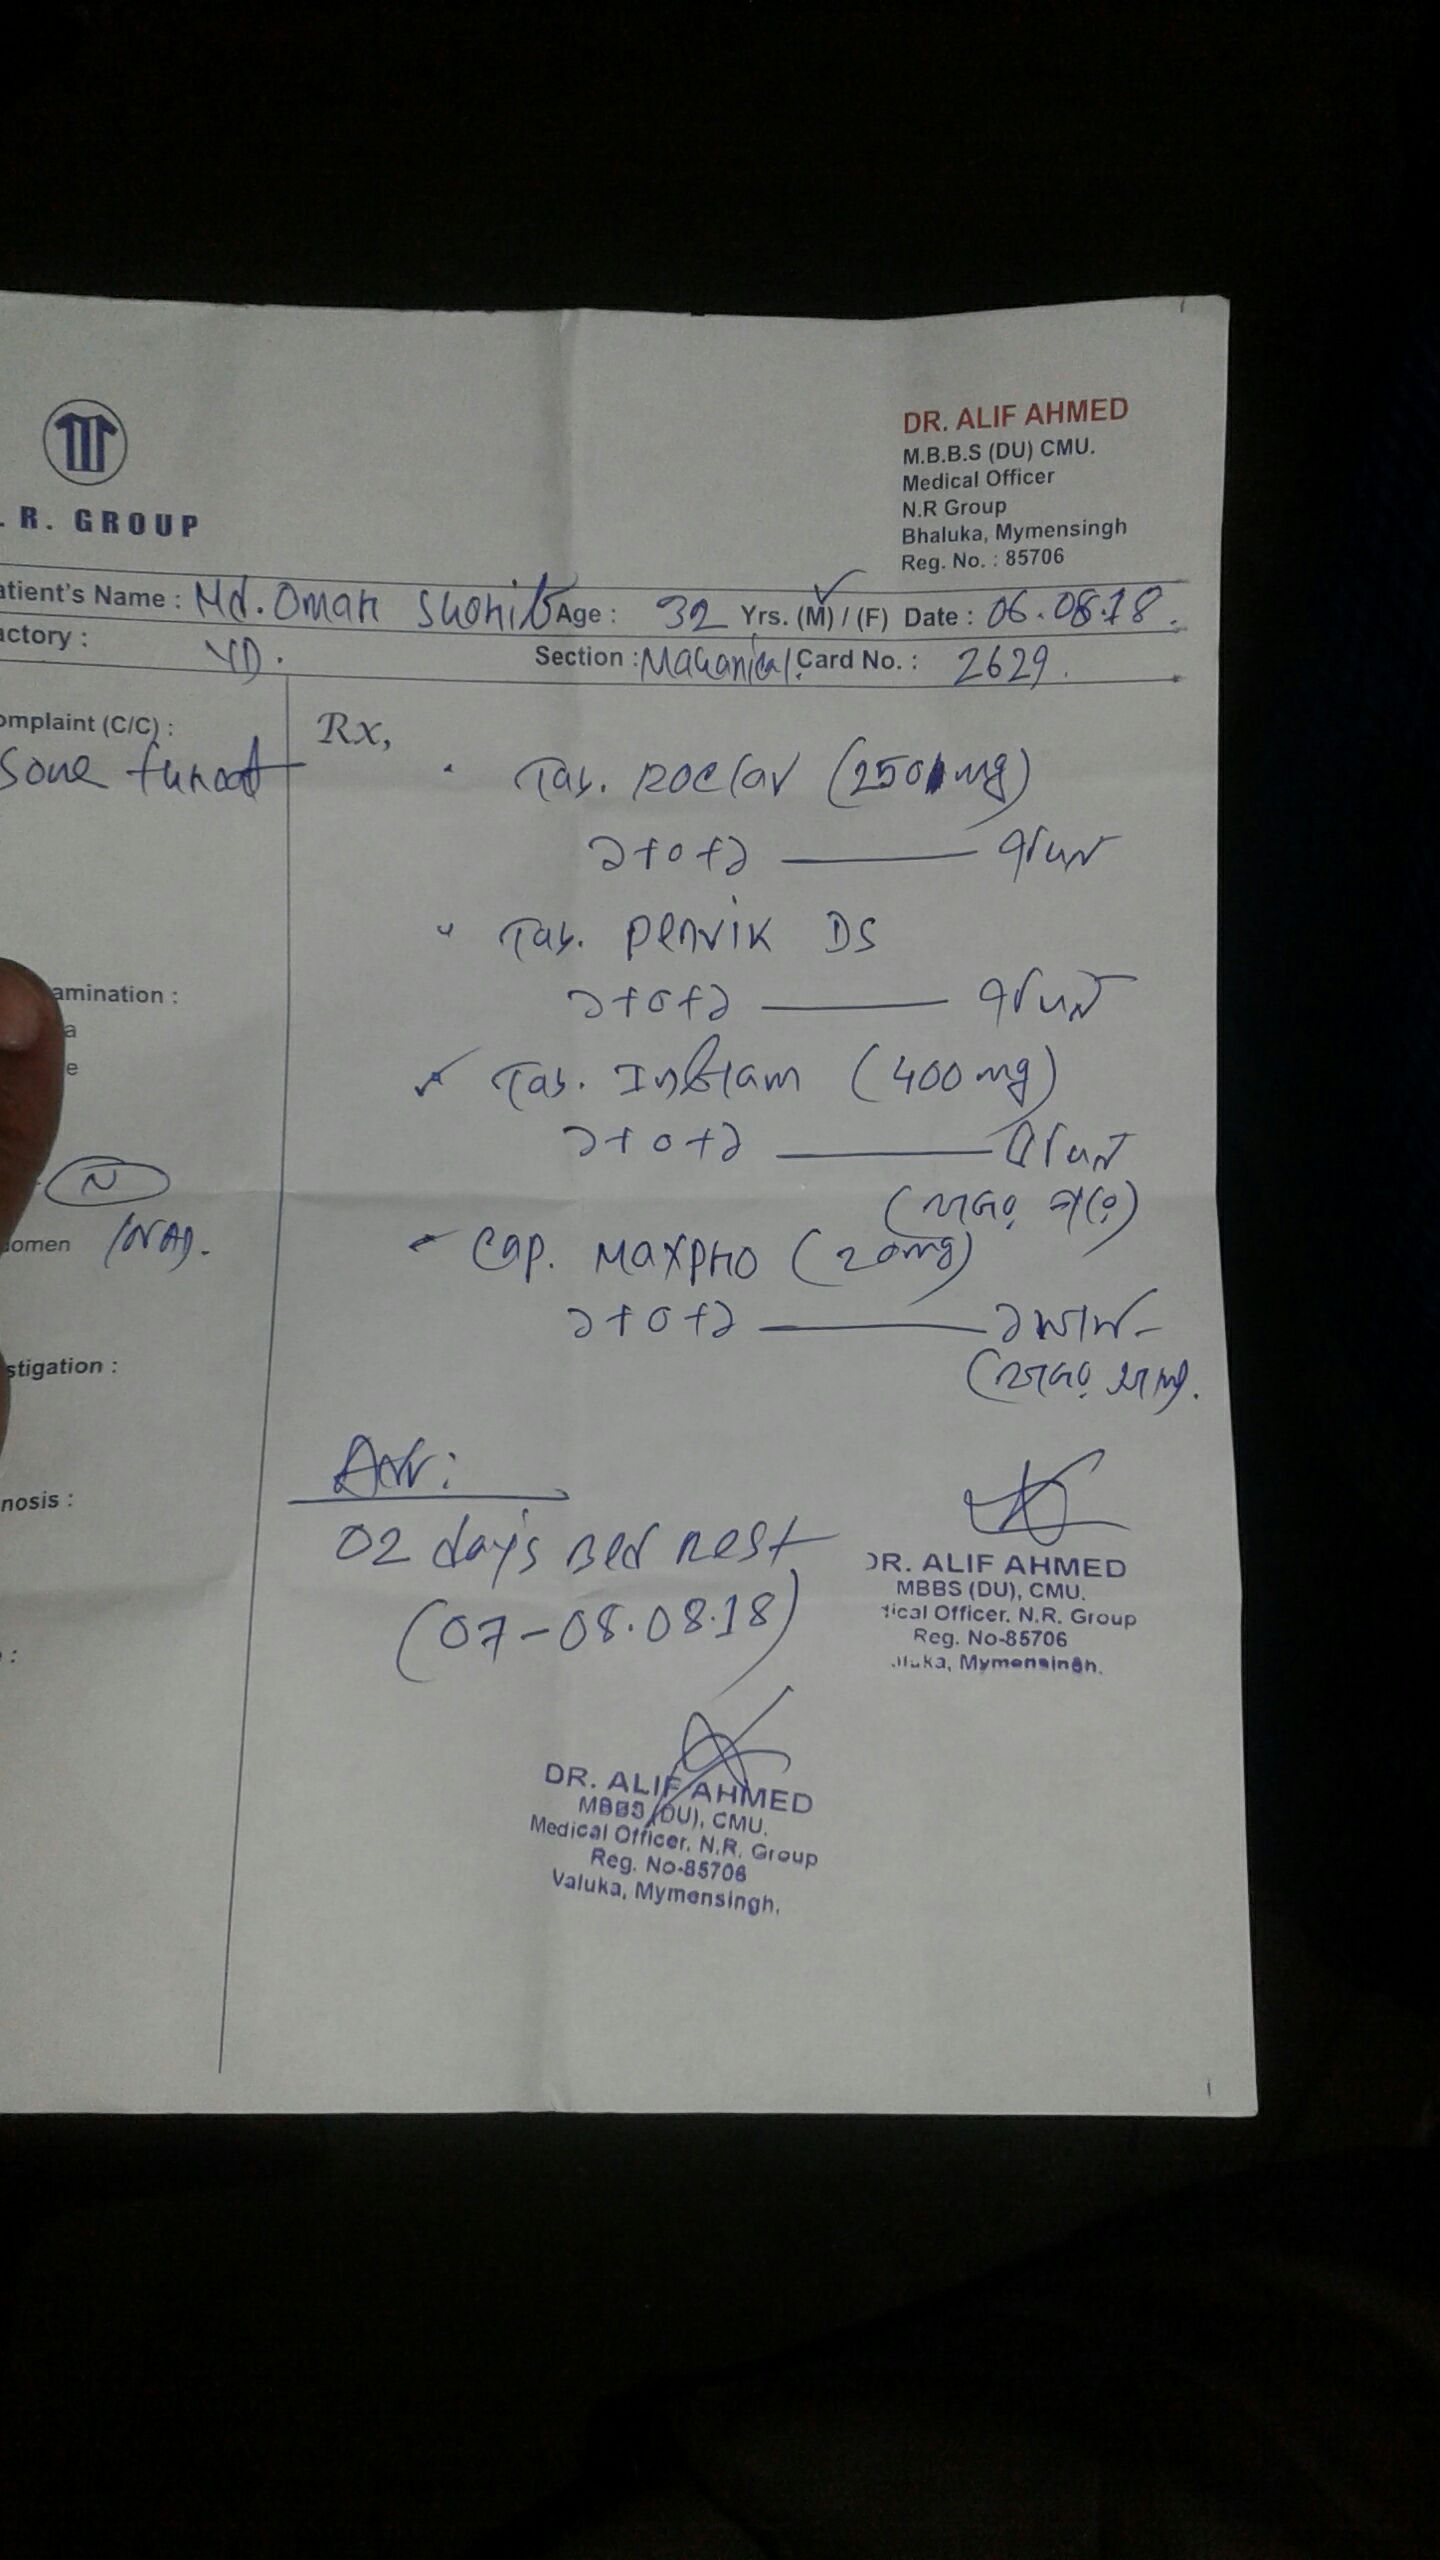 . R. GROUP
DR. ALIF AHMED
M.B.B.S (DU) CMU.
Medical Officer
N.R Group
Bhaluka, Mymensingh
Reg. No. : 85706
atient's Name : Md. Omar Shohib Age : 32 Yrs. (M) / (F) Date : 06.08.18.
actory : YD. Section : Macanical. Card No. : 2629.
omplaint (C/C) :
Sore
Rx,
Tab. Roclav (250mg)
১+০+১
Tab. Penvik DS
১+০+১
Tab. Inflam (400mg)
১+০+১
Cap. Maxpro (20mg)
১+০+১
amination :
a
e
N
omen NAD.
stigation :
nosis :
:
Adv:
02 days Bed Rest
(07-08.08.18)
DR. ALIF AHMED
MBBS (DU), CMU.
ical Officer. N.R. Group
Reg. No-85706
luka, Mymensingh.
DR. ALIF AHMED
MBBS (DU), CMU.
Medical Officer. N.R. Group
Reg. No-85706
Valuka, Mymensingh.